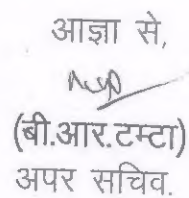 आज्ञा से,
(बी.आर.टम्टा)
अपर सचिव.